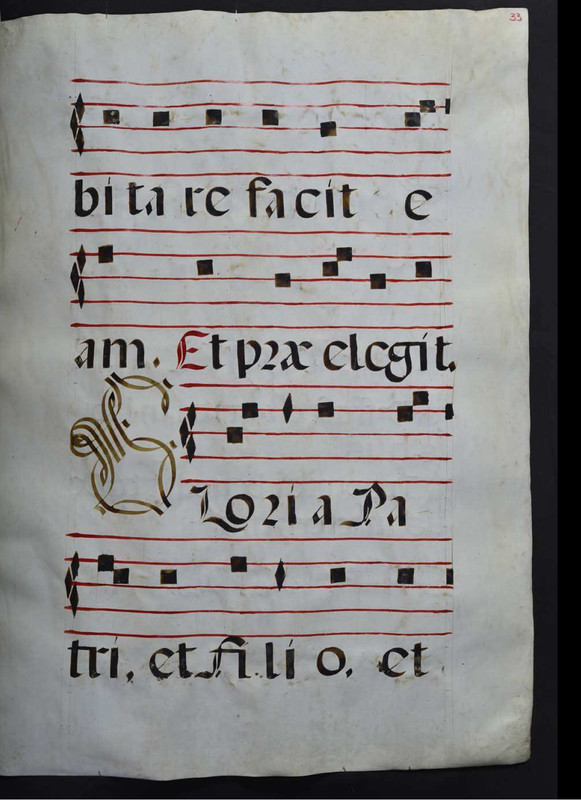 33
bi ta re facit e
am. Et præ elegit.
GLoria Pa
tri, et fili o, et